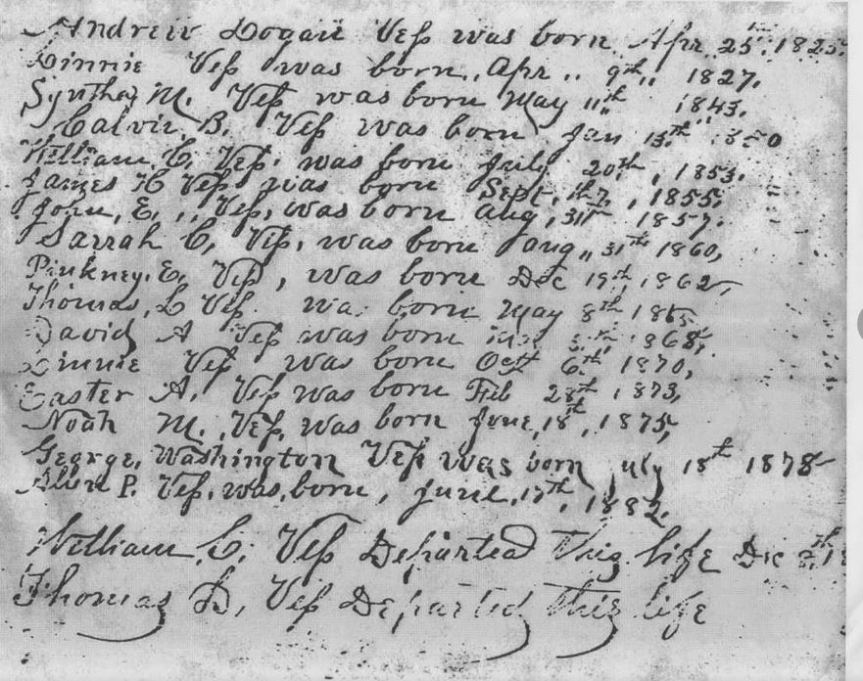 Andrew Logan Veſs was born Apr 25th 1825.
Linnie Veſs was born,, Apr ,, 9th,, 1827,
Syntha M. Veſs was born May 11th 1843.
Calvin B. Veſs was born Jan 13th 1850
William C. Veſs. was born July 20th, 1853.
James H Veſs was born Sept. 7th, 1855.
John, E.,, Veſs, was born Aug, 31st 1857.
Sarrah C, Veſs, was born aug,, 31st 1860,
Pinkney. E, Veſs, was born Dec 19th, 1862,
Thomas, Veſs. wa born May 8th 1865,
David A Veſs was born 1868,
Linnie Veſs was born Oct 6th 1870,
Easter A, Veſs was born Feb 28th, 1873,
Noah M., Veſs, was born June, 18th, 1875,
George, Washington Veſs was born July 18th 1878
P. Veſs, was, born, June, 17th, 1882,
William, C, Veſs Departed this life Dec
Thomas Veſs Departed this life